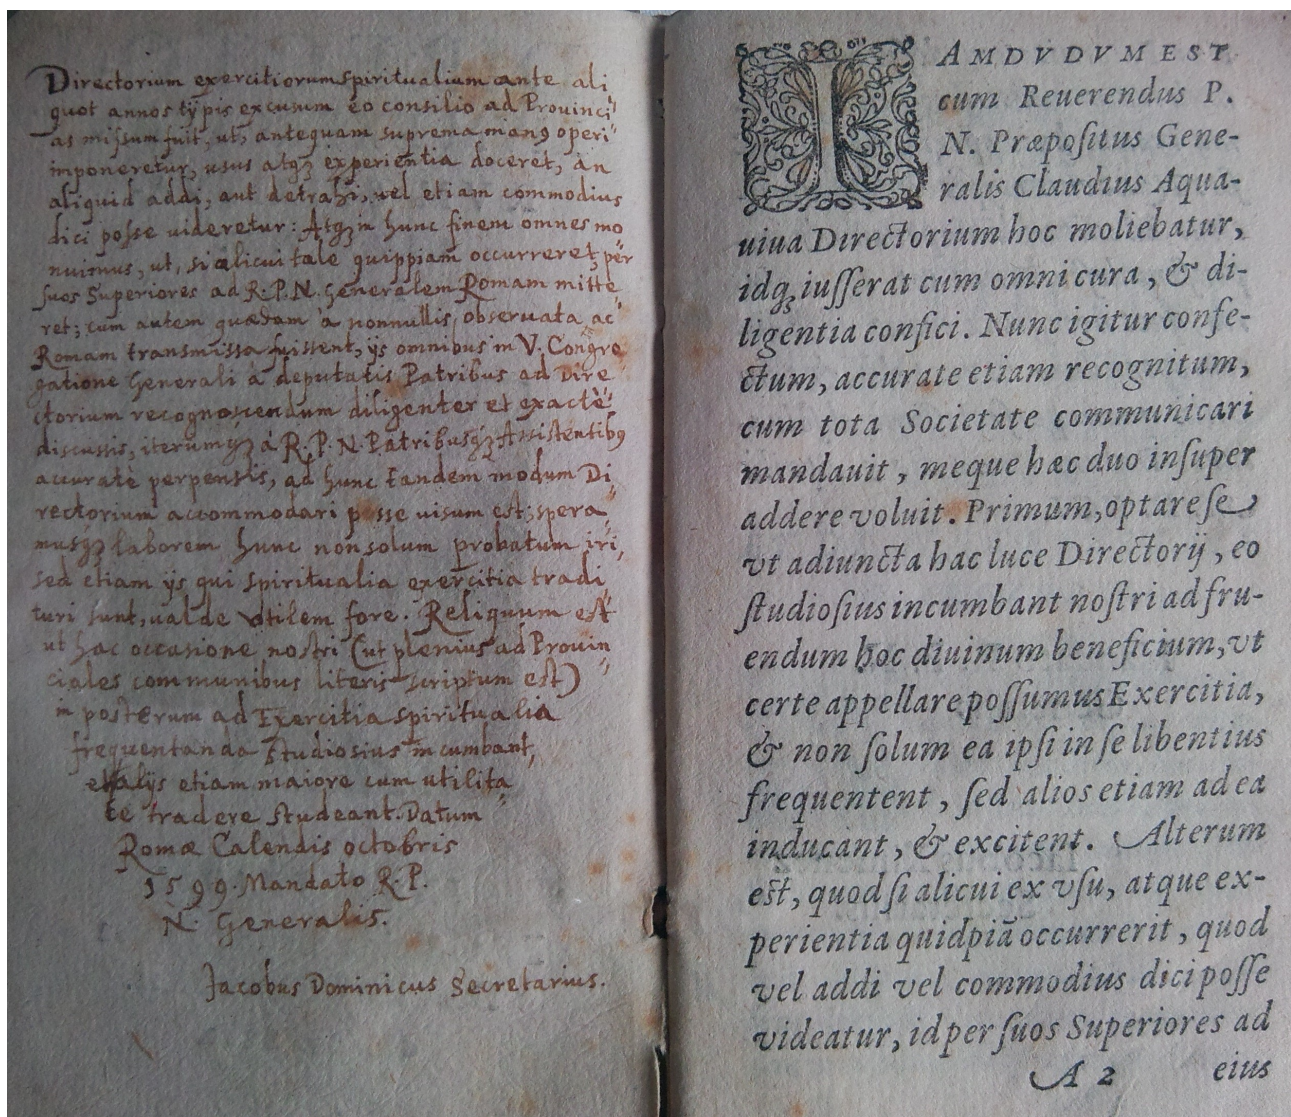 Directorium exercitiorum spiritualium ante ali
quot annos typis excusum eo consilio ad Provinci"
as missum fuit, ut, antequam suprema manꝰ operi"
imponeretur, usus atqꝫ experientia doceret, an
aliquid addi, aut detrahi, vel etiam commodius
dici posse uideretur: Atqꝫ in hunc finem omnes mo
nuimus, ut, si alicui tale quippiam occurreret, per
suos Superiores ad R. P. N. Generalem Romam mitte"
ret; cum autem quædam à nonnullis obseruata ac"
Romam transmissa fuissent, ijs omnibus in V. Congre"
gatione Generali à deputatis Patribus ad Dire"
ctorium recognoscendum diligenter et exactè"
discussis, iterumqꝫ à R. P. N. Patribusqꝫ Assistentibꝰ
accuratè perpensis, ad hunc tandem modum Di"
rectorium accommodari posse uisum est; spera"
musqꝫ laborem hunc non solum probatum iri,
sed etiam ijs qui spiritualia exercitia tradi"
turi sunt, ualde vtilem fore. Reliquum est
ut hac occasione nostri (ut plenius ad Prouin"
ciales communibus literis scriptum est)
in posterum ad Exercitia spiritualia
frequentanda studiosius incumbant,
et alijs etiam maiore cum utilita"
te tradere studeant. Datum
Romæ Calendis octobris
1599. Mandato R. P.
N. Generalis.
Jacobus Dominicus Secretarius.
IAMDVDVM EST
cum Reuerendus P.
N. Præpoſitus Gene-
ralis Claudius Aqua-
uiua Directorium hoc moliebatur,
idqꝫ iuſſerat cum omni cura, & di-
ligentia confici. Nunc igitur confe-
ctum, accurate etiam recognitum,
cum tota Societate communicari
mandauit, meque hæc duo inſuper
addere voluit. Primum, optare ſe
vt adiuncta hac luce Directorij, eo
ſtudioſius incumbant noſtri ad fru-
endum hoc diuinum beneficium, vt
certe appellare poſſumus Exercitia,
& non ſolum ea ipſi in ſe libentius
frequentent, ſed alios etiam ad ea
inducant, & excitent. Alterum
est, quod ſi alicui ex vſu, atque ex-
perientia quidpiã occurrerit, quod
vel addi vel commodius dici poſſe
videatur, id per ſuos Superiores ad
A 2 eius